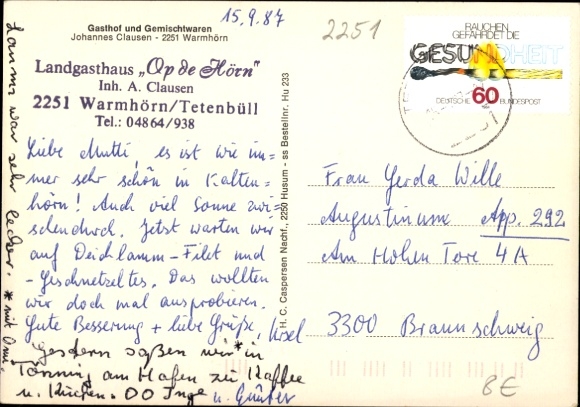 15.9.87
2251
Gasthof und Gemischtwaren
Johannes Clausen - 2251 Warmhörn
Landgasthaus „Op de Hörn"
Inh. A. Clausen
2251 Warmhörn/Tetenbüll
Tel.: 04864/938
Liebe Mutti, es ist wie im-
mer sehr schön in Kalten-
hörn! Auch viel Sonne zwi-
schendurch. Jetzt warten wir
auf Deichlamm-Filet und
-Geschnetzeltes. Das wollten
wir doch mal ausprobieren.
Gute Besserung + liebe Grüße, Ursel
gestern saßen wir* in
Tönning am Hafen zu Kaffee
u. Kuchen. OO Inge u. Günter
Lamm war sehr lecker. * mit Omi.
H. C. Caspersen Nachf., 2250 Husum - ss Bestellnr. Hu 233
RAUCHEN
GEFÄHRDET DIE
GESUNDHEIT
DEUTSCHE 60 BUNDESPOST
Frau Gerda Wille
Augustinum App. 292
Am Hohen Tore 4A
3300 Braunschweig
8€